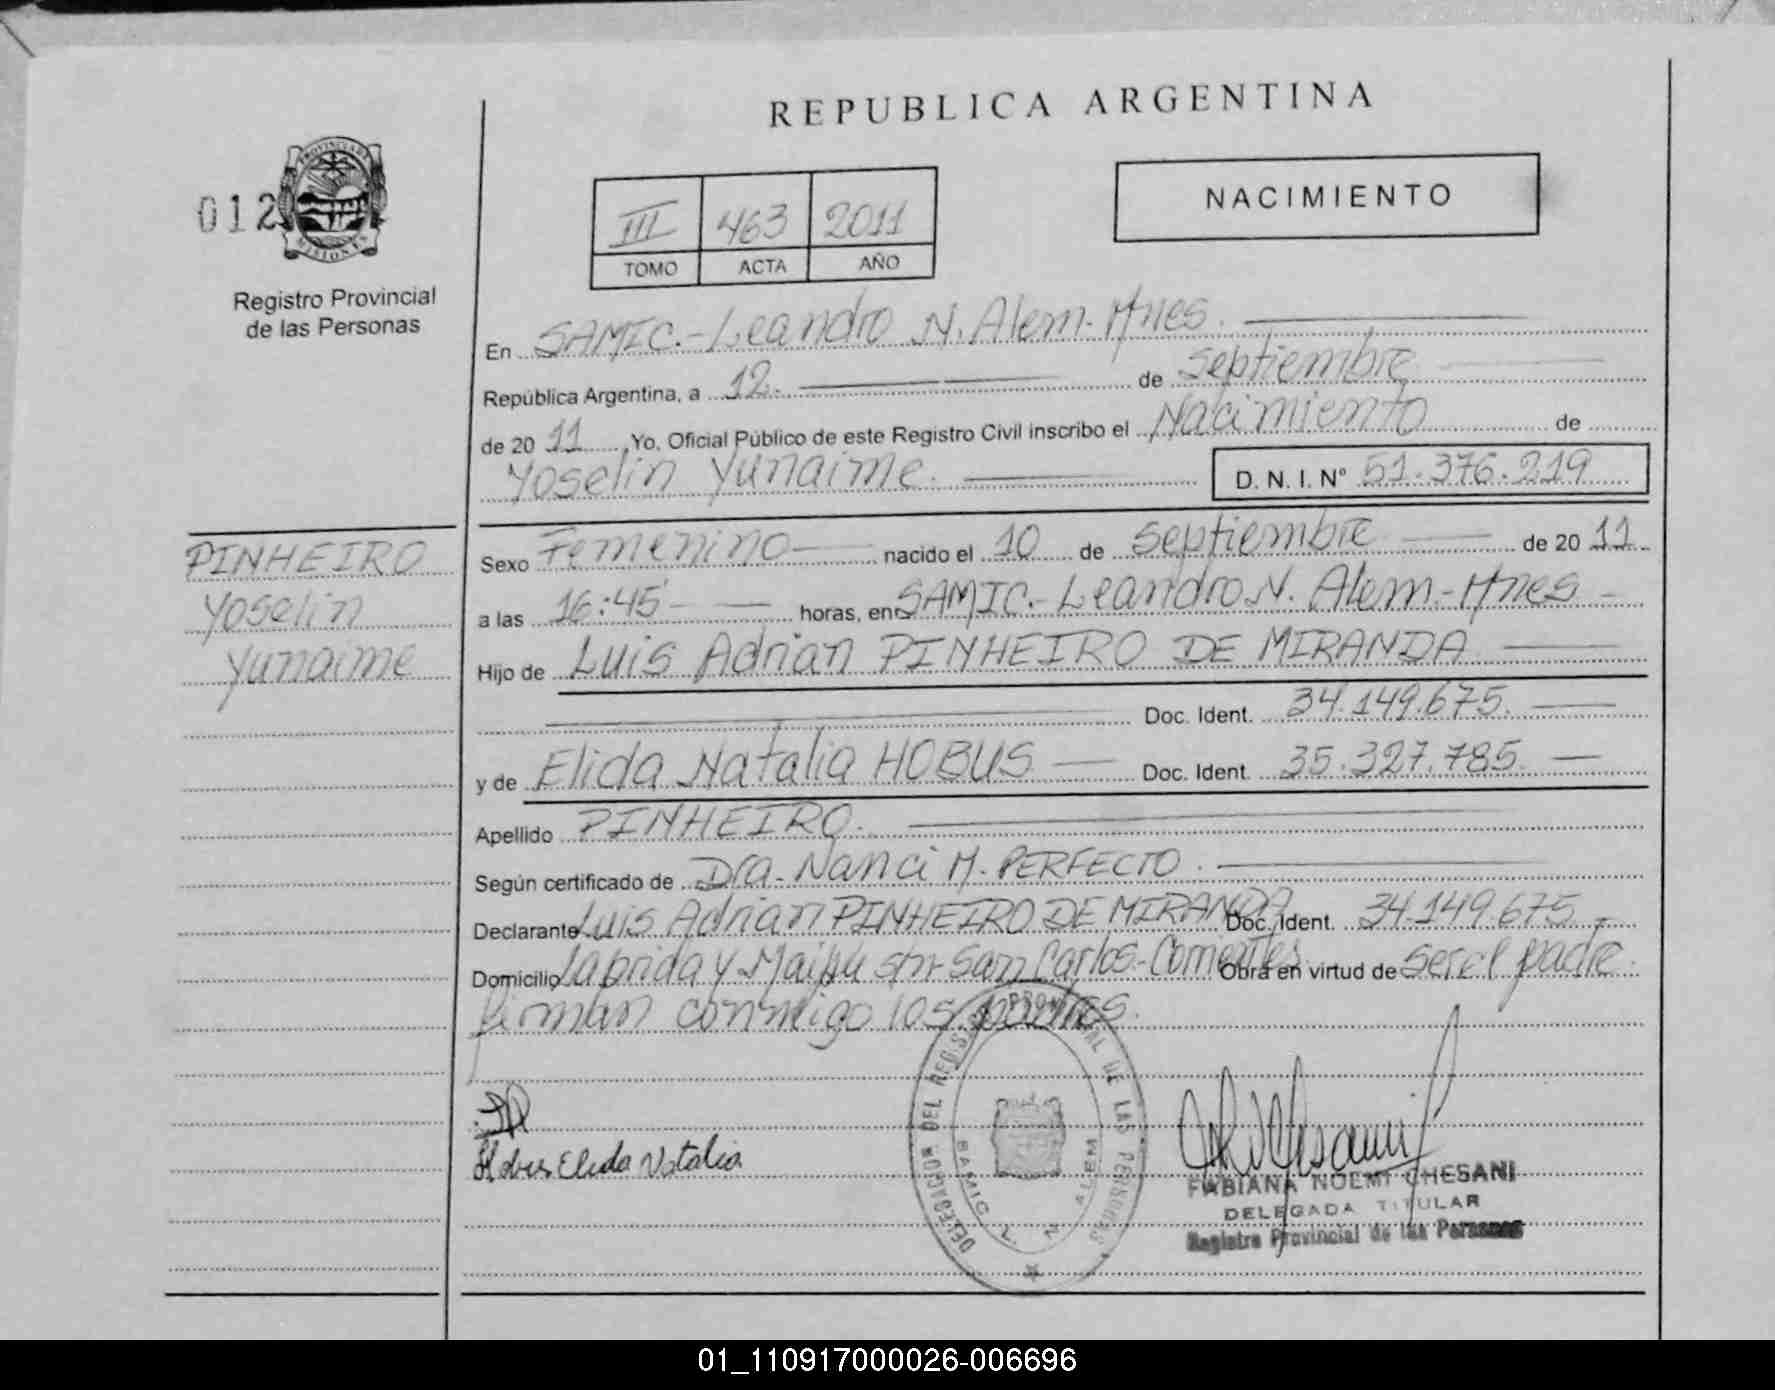 REPUBLICA ARGENTINA
012
PROVINCIA DE
MISIONES
Registro Provincial
de las Personas
III 463 2011
TOMO ACTA AÑO
NACIMIENTO
En SAMIC.-Leandro N. Alem-Mnes.
República Argentina, a 12. de Septiembre
de 20 11 , Yo, Oficial Público de este Registro Civil inscribo el Nacimiento de
Yoselin Yunaime. D. N. I. Nº 51.376.219
PINHEIRO
Yoselin
Yunaime
Sexo Femenino nacido el 10 de Septiembre de 20 11
a las 16:45 horas, en SAMIC.-Leandro N. Alem.-Mnes
Hijo de Luis Adrian PINHEIRO DE MIRANDA
Doc. Ident. 34.149.675.
y de Elida Natalia HOBUS Doc. Ident. 35.327.785.
Apellido PINHEIRO.
Según certificado de Dra. Nanci M. PERFECTO.
Declarante Luis Adrian PINHEIRO DE MIRANDA Doc. Ident. 34.149.675
Domicilio Laprida y Maipu s/nº San Carlos-Corrientes Obra en virtud de ser el padre.
firman conmigo los padres.
Hobus Elida Natalia
DELEGACION DEL REGISTRO PROVINCIAL DE LAS PERSONAS
SAMIC L. N. ALEM
FABIANA NOEMI CHESANI
DELEGADA TITULAR
Registro Provincial de las Personas
01_110917000026-006696